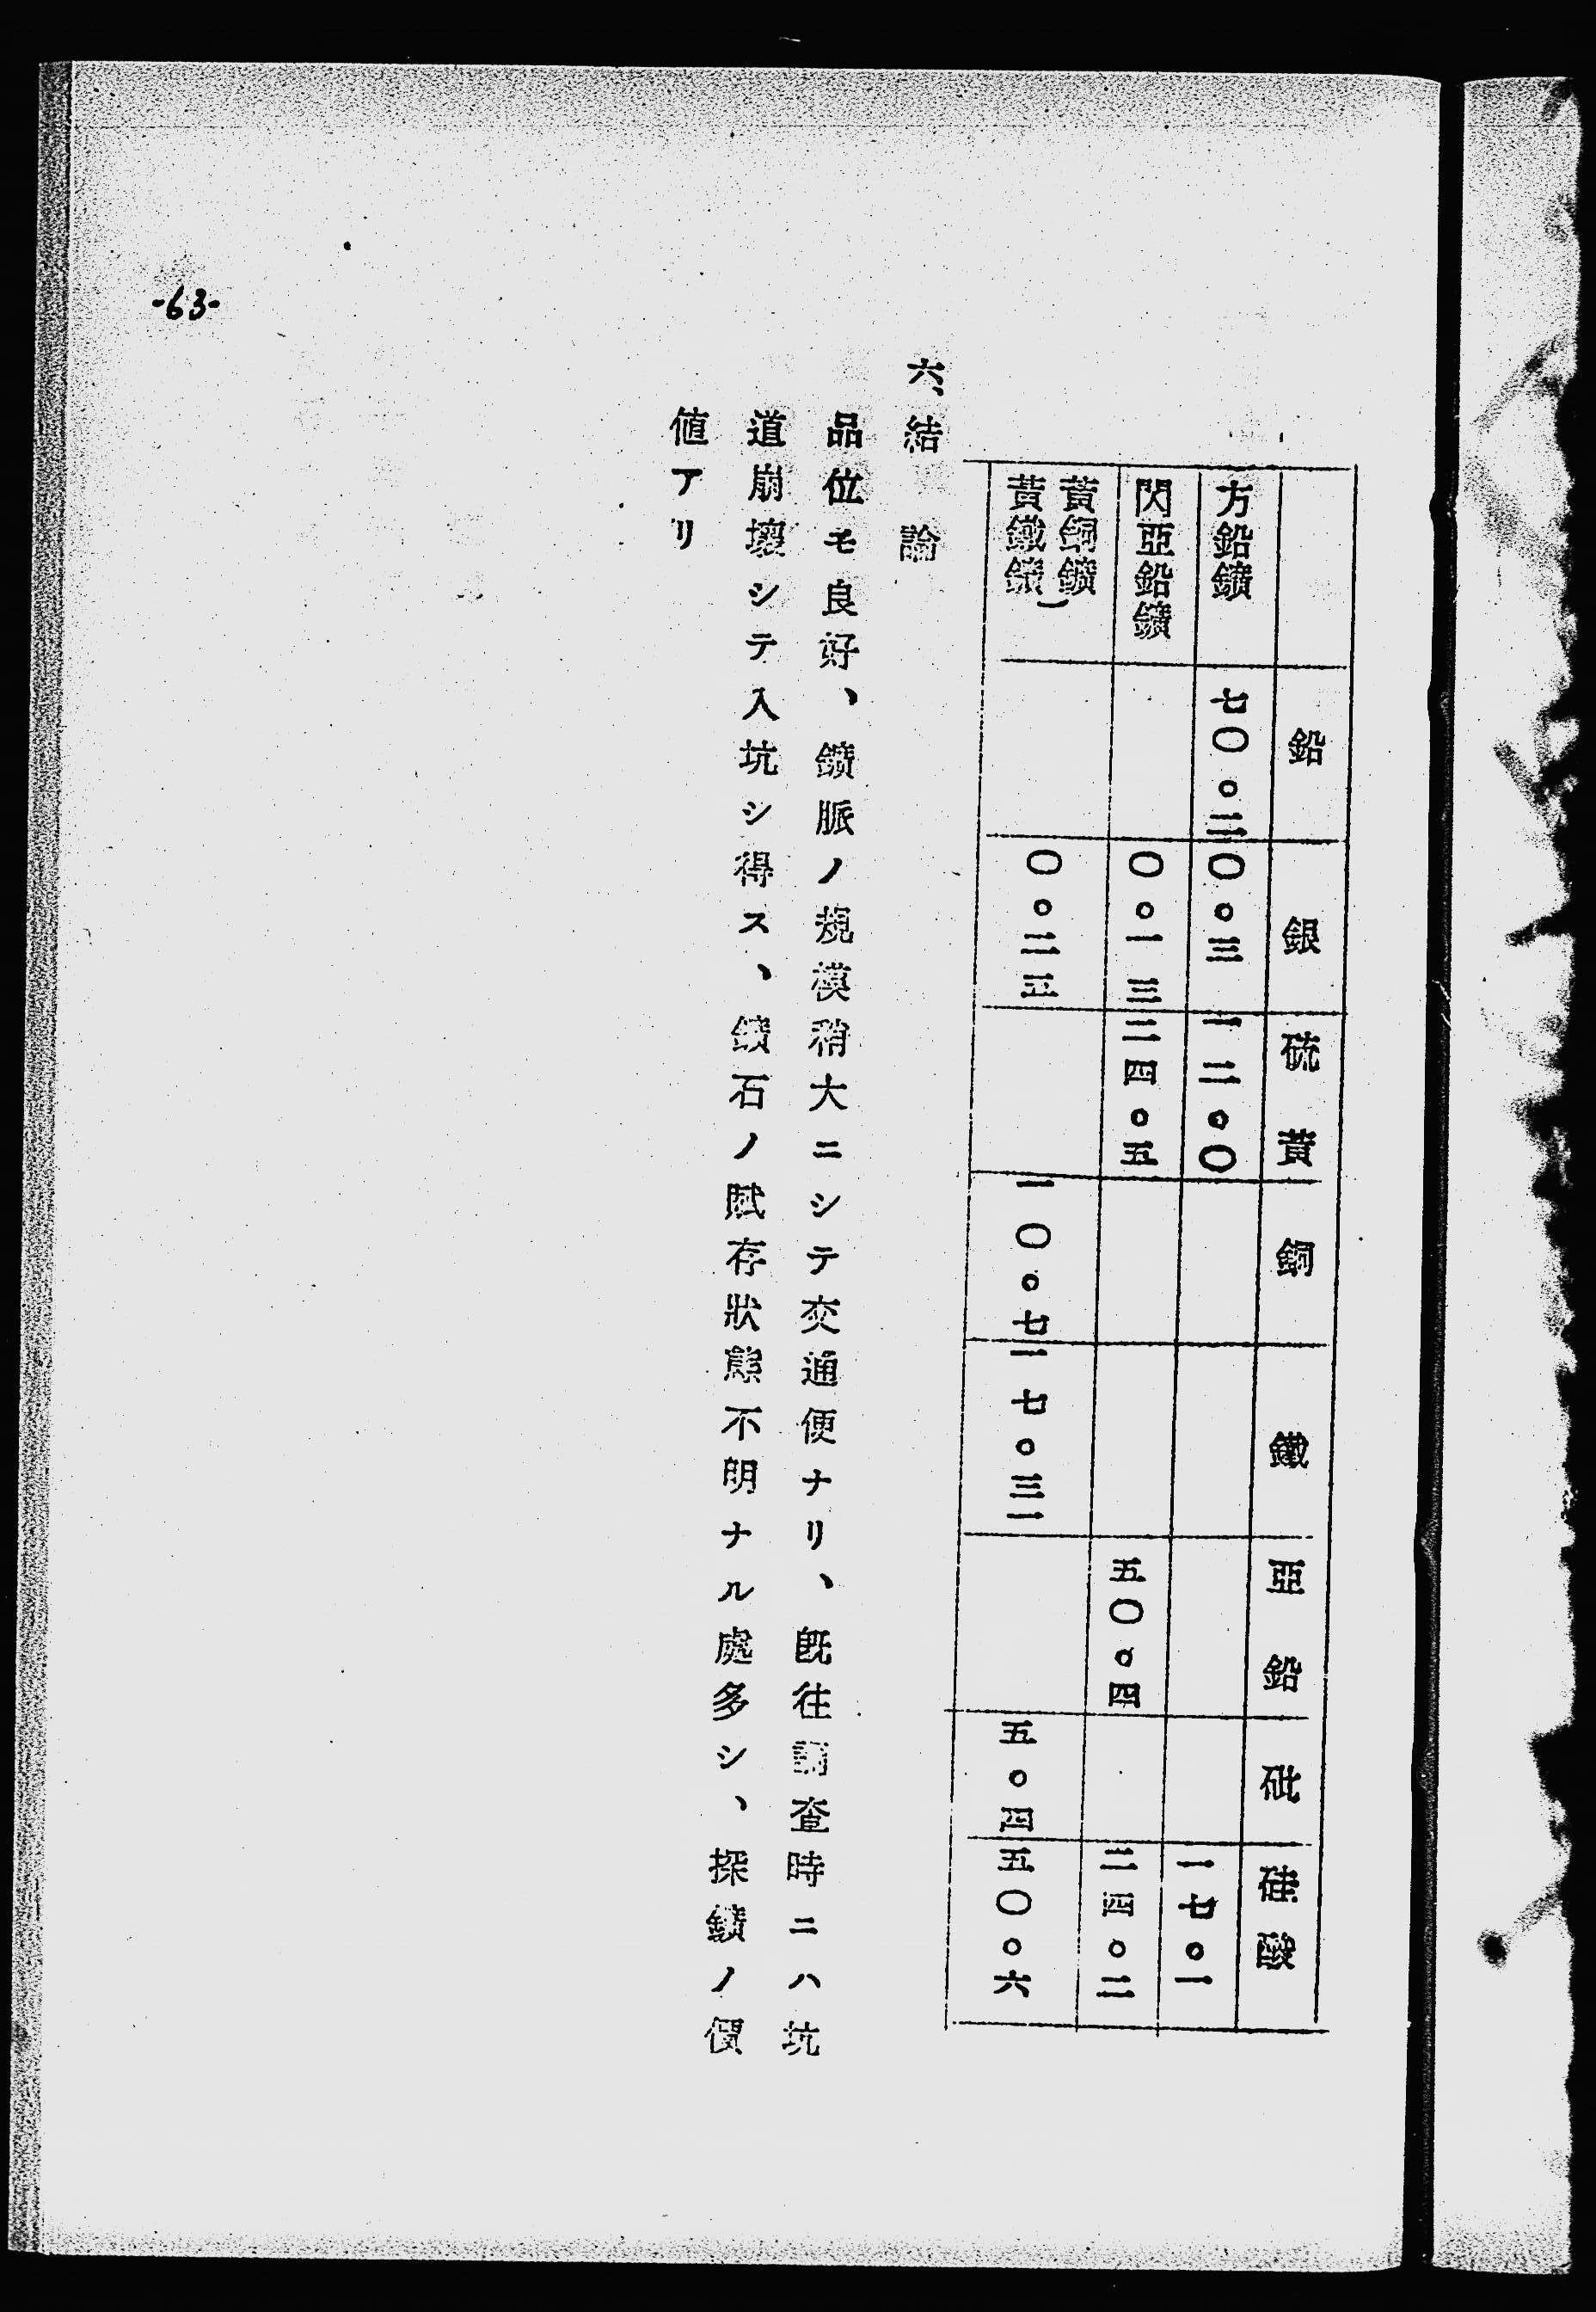 鉛 銀 硫黃 銅 鐵 亞鉛 砒 硅酸
方鉛鑛 七〇。二 〇。三 一二。〇 一七。一
閃亞鉛鑛 〇。一三 二四。五 五〇。四 二四。二
黃銅鑛
黃鐵鑛) 〇。二五 一〇。七 一七。三一 五。四 五〇。六
六、結論
品位モ良好、鑛脈ノ規模稍大ニシテ交通便ナリ、既往調査時ニハ坑
道崩壞シテ入坑シ得ス、鑛石ノ賦存狀態不明ナル處多シ、探鑛ノ價
値アリ
-63-